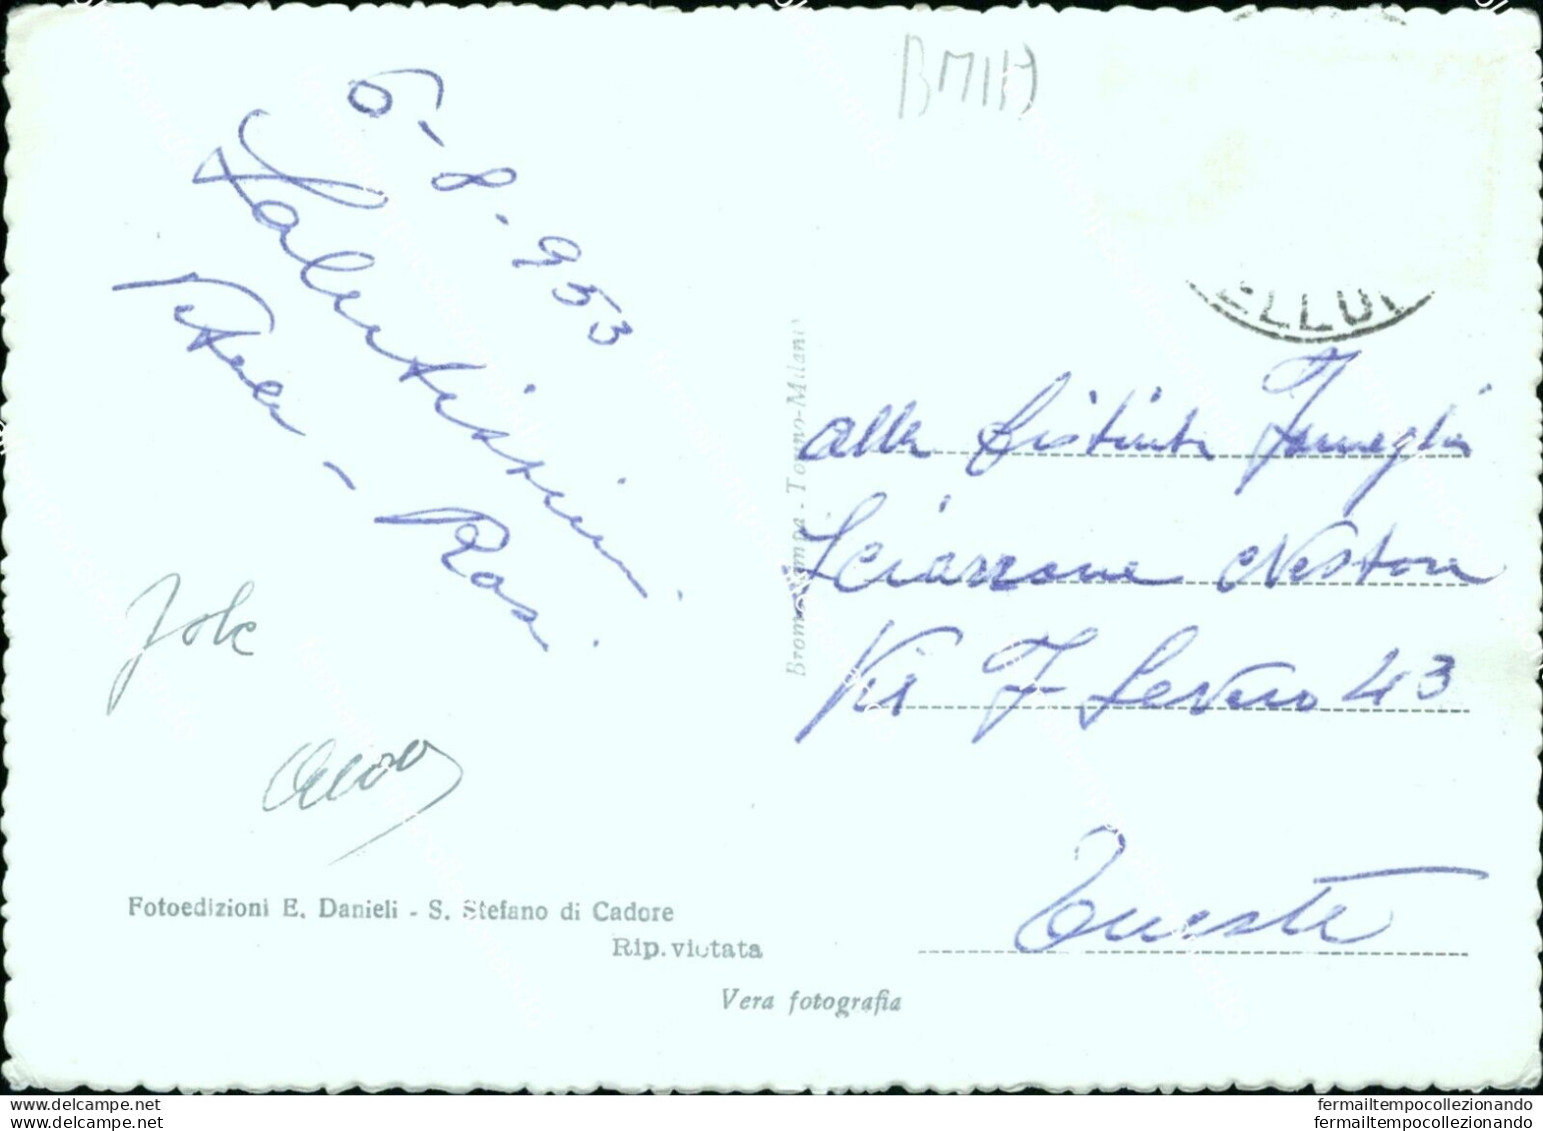 BM113
6-8-953
Salutissimi
Rosa.
Jole
Fotoedizioni E. Danieli - S. Stefano di Cadore
Rip. vietata
Vera fotografia
Bromostampa - Torino-Milano
ELLUN
alla distinta Famiglia
Sciarrone Nestore
Via F Severo 43
Trieste
www.delcampe.net
www.delcampe.net
fermailtempocollezionando
fermailtempocollezionando